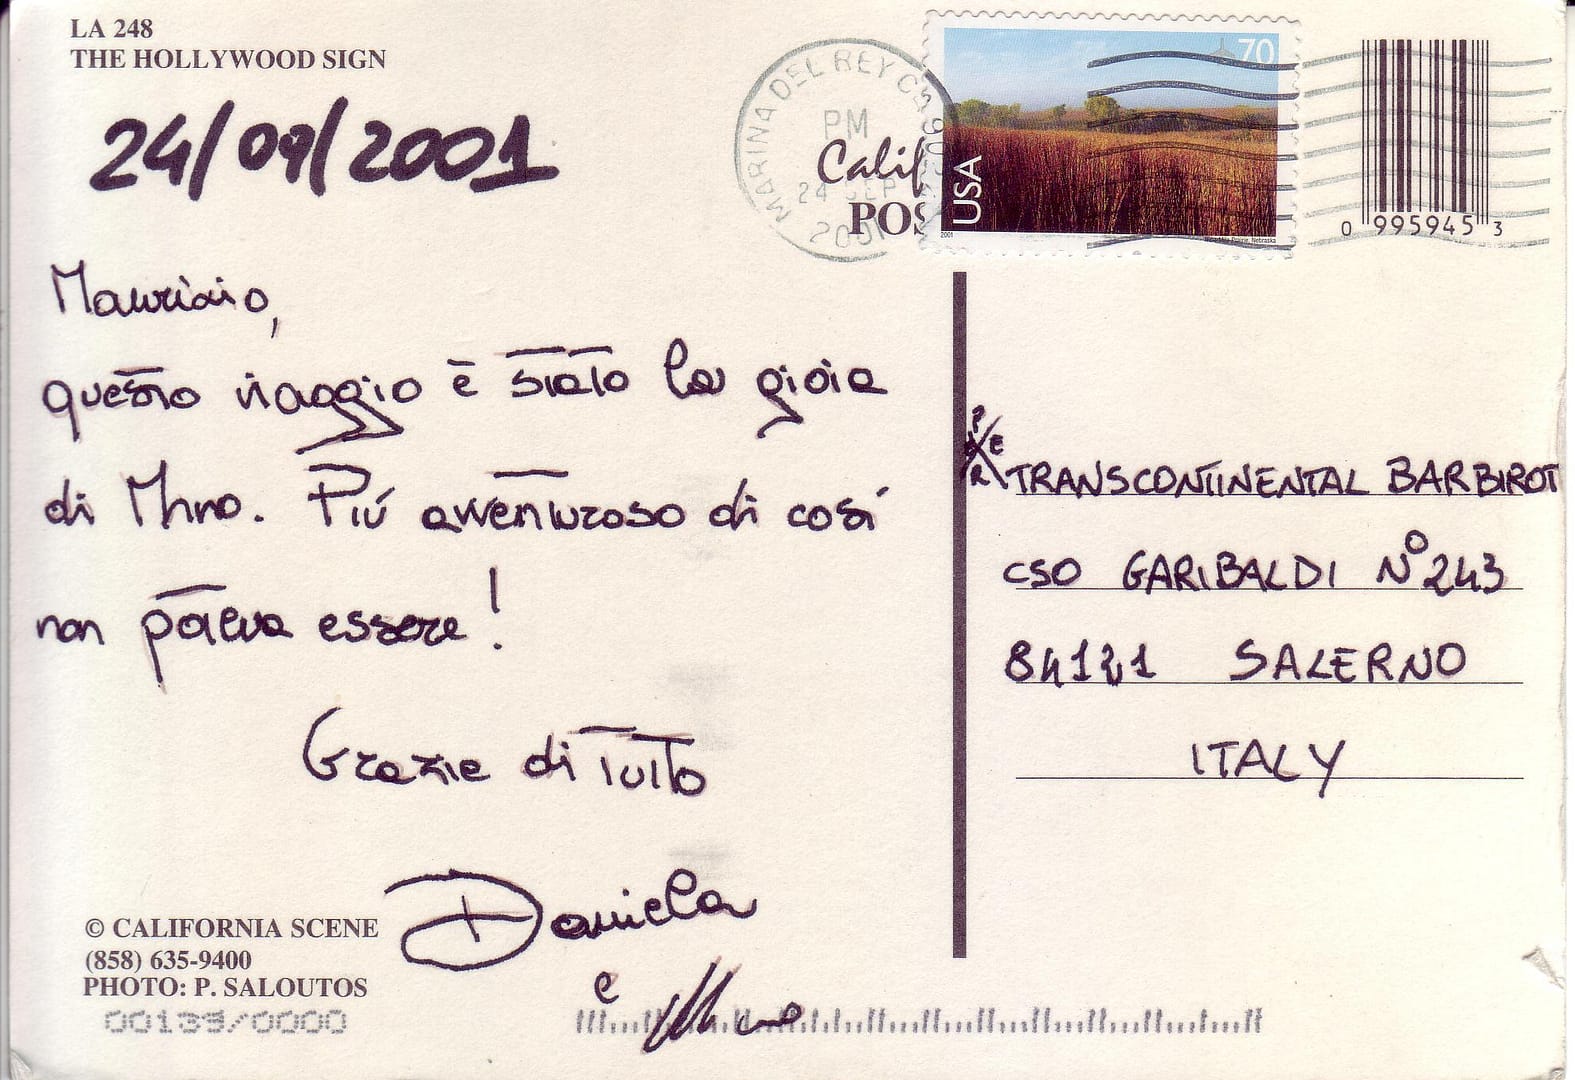 LA 248
THE HOLLYWOOD SIGN
24/09/2001
Maurizio,
questo viaggio è stato la gioia
di Mino. Più avventuroso di così
non poteva essere!
Grazie di tutto
Daniela
e Mino
© CALIFORNIA SCENE
(858) 635-9400
PHOTO: P. SALOUTOS
00139/0000
MARINA DEL REY CA
PM
24 SEP
2001
Calif
POS
70
USA
2001
Nebraska
0 995945 3
PER
TRANSCONTINENTAL BARBIROT
CSO GARIBALDI N° 243
84121 SALERNO
ITALY